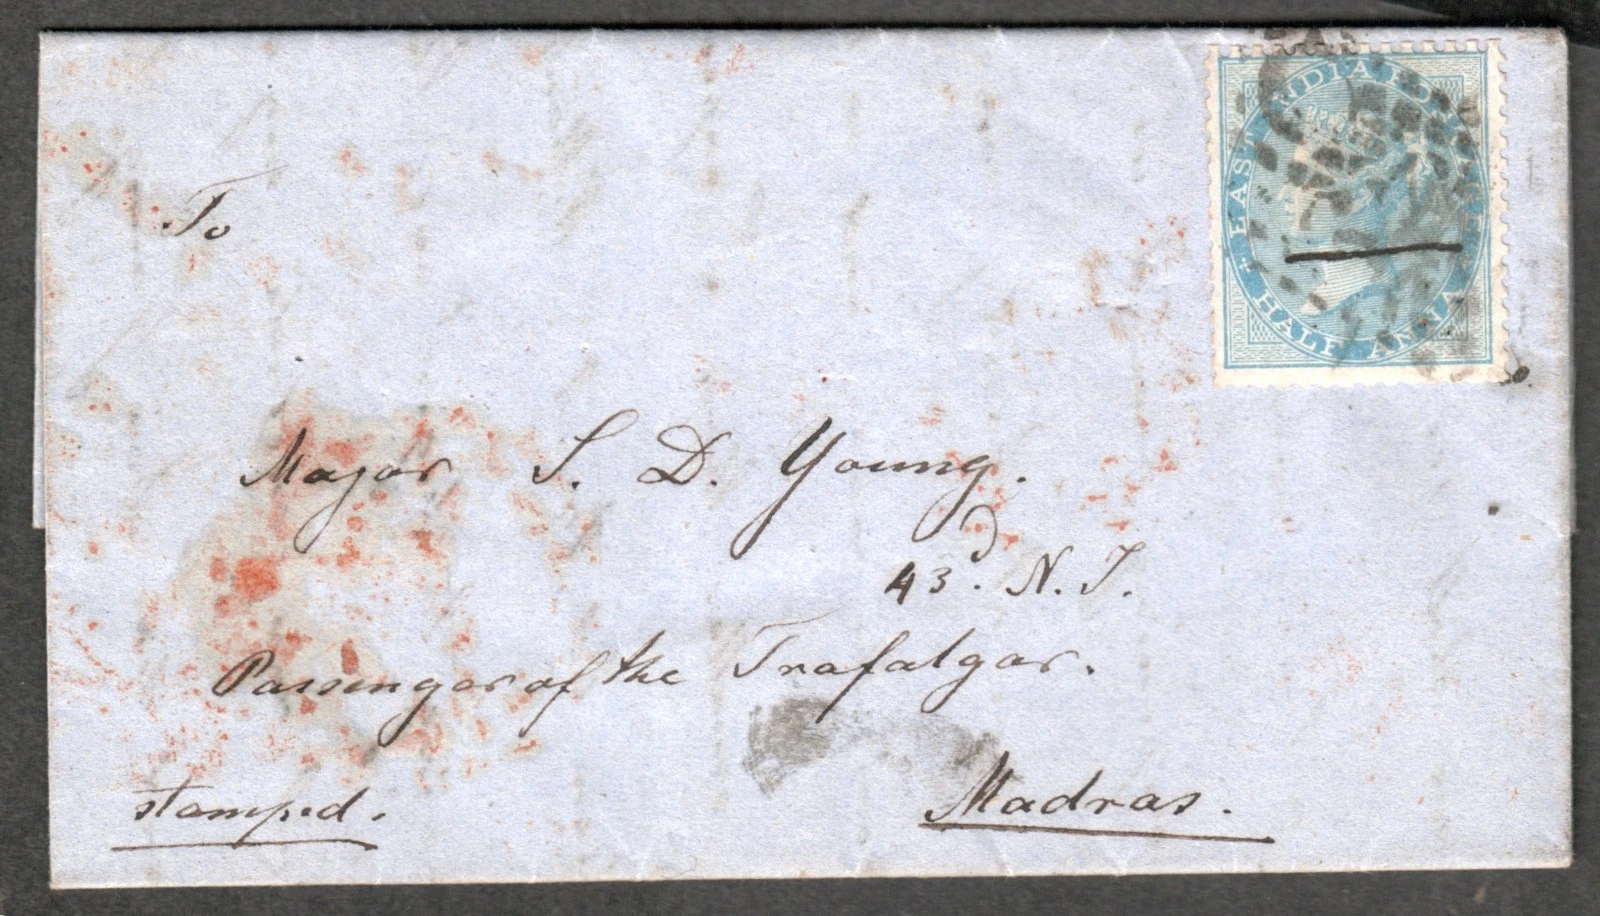 EAST INDIA POSTAGE
HALF ANNA
To
Major S. D. Young.
43d. N. I.
Passenger of the Trafalgar.
Madras.
stamped.